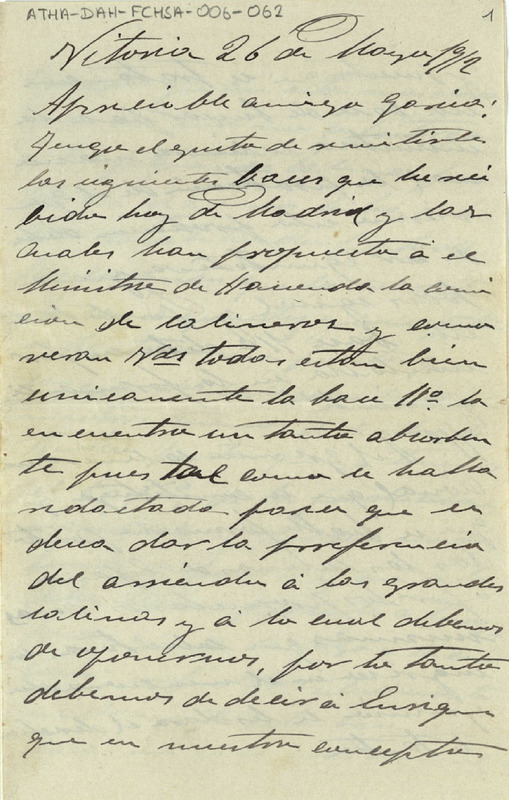 ATHA-DAH-FCHSA-006-062
1
Vitoria 26 de Mayo 1912
Apreciable amigo Garcia:
Tengo el gusto de remitirles
las siguientes bases que he reci
bido hoy de Madrid y las
cuales han propuesto á el
Ministro de Hacienda la comi
sion de salineros y como
veran Vds todas estan bien
unicamente la base 11º la
encuentro un tanto absorben
te pues tal como se halla
redactada parece que se
desea dar la preferencia
del arriendo á las grandes
salinas y á lo cual debemos
de oponernos, por lo tanto
debemos de decir á Enrique
que en nuestro concepto